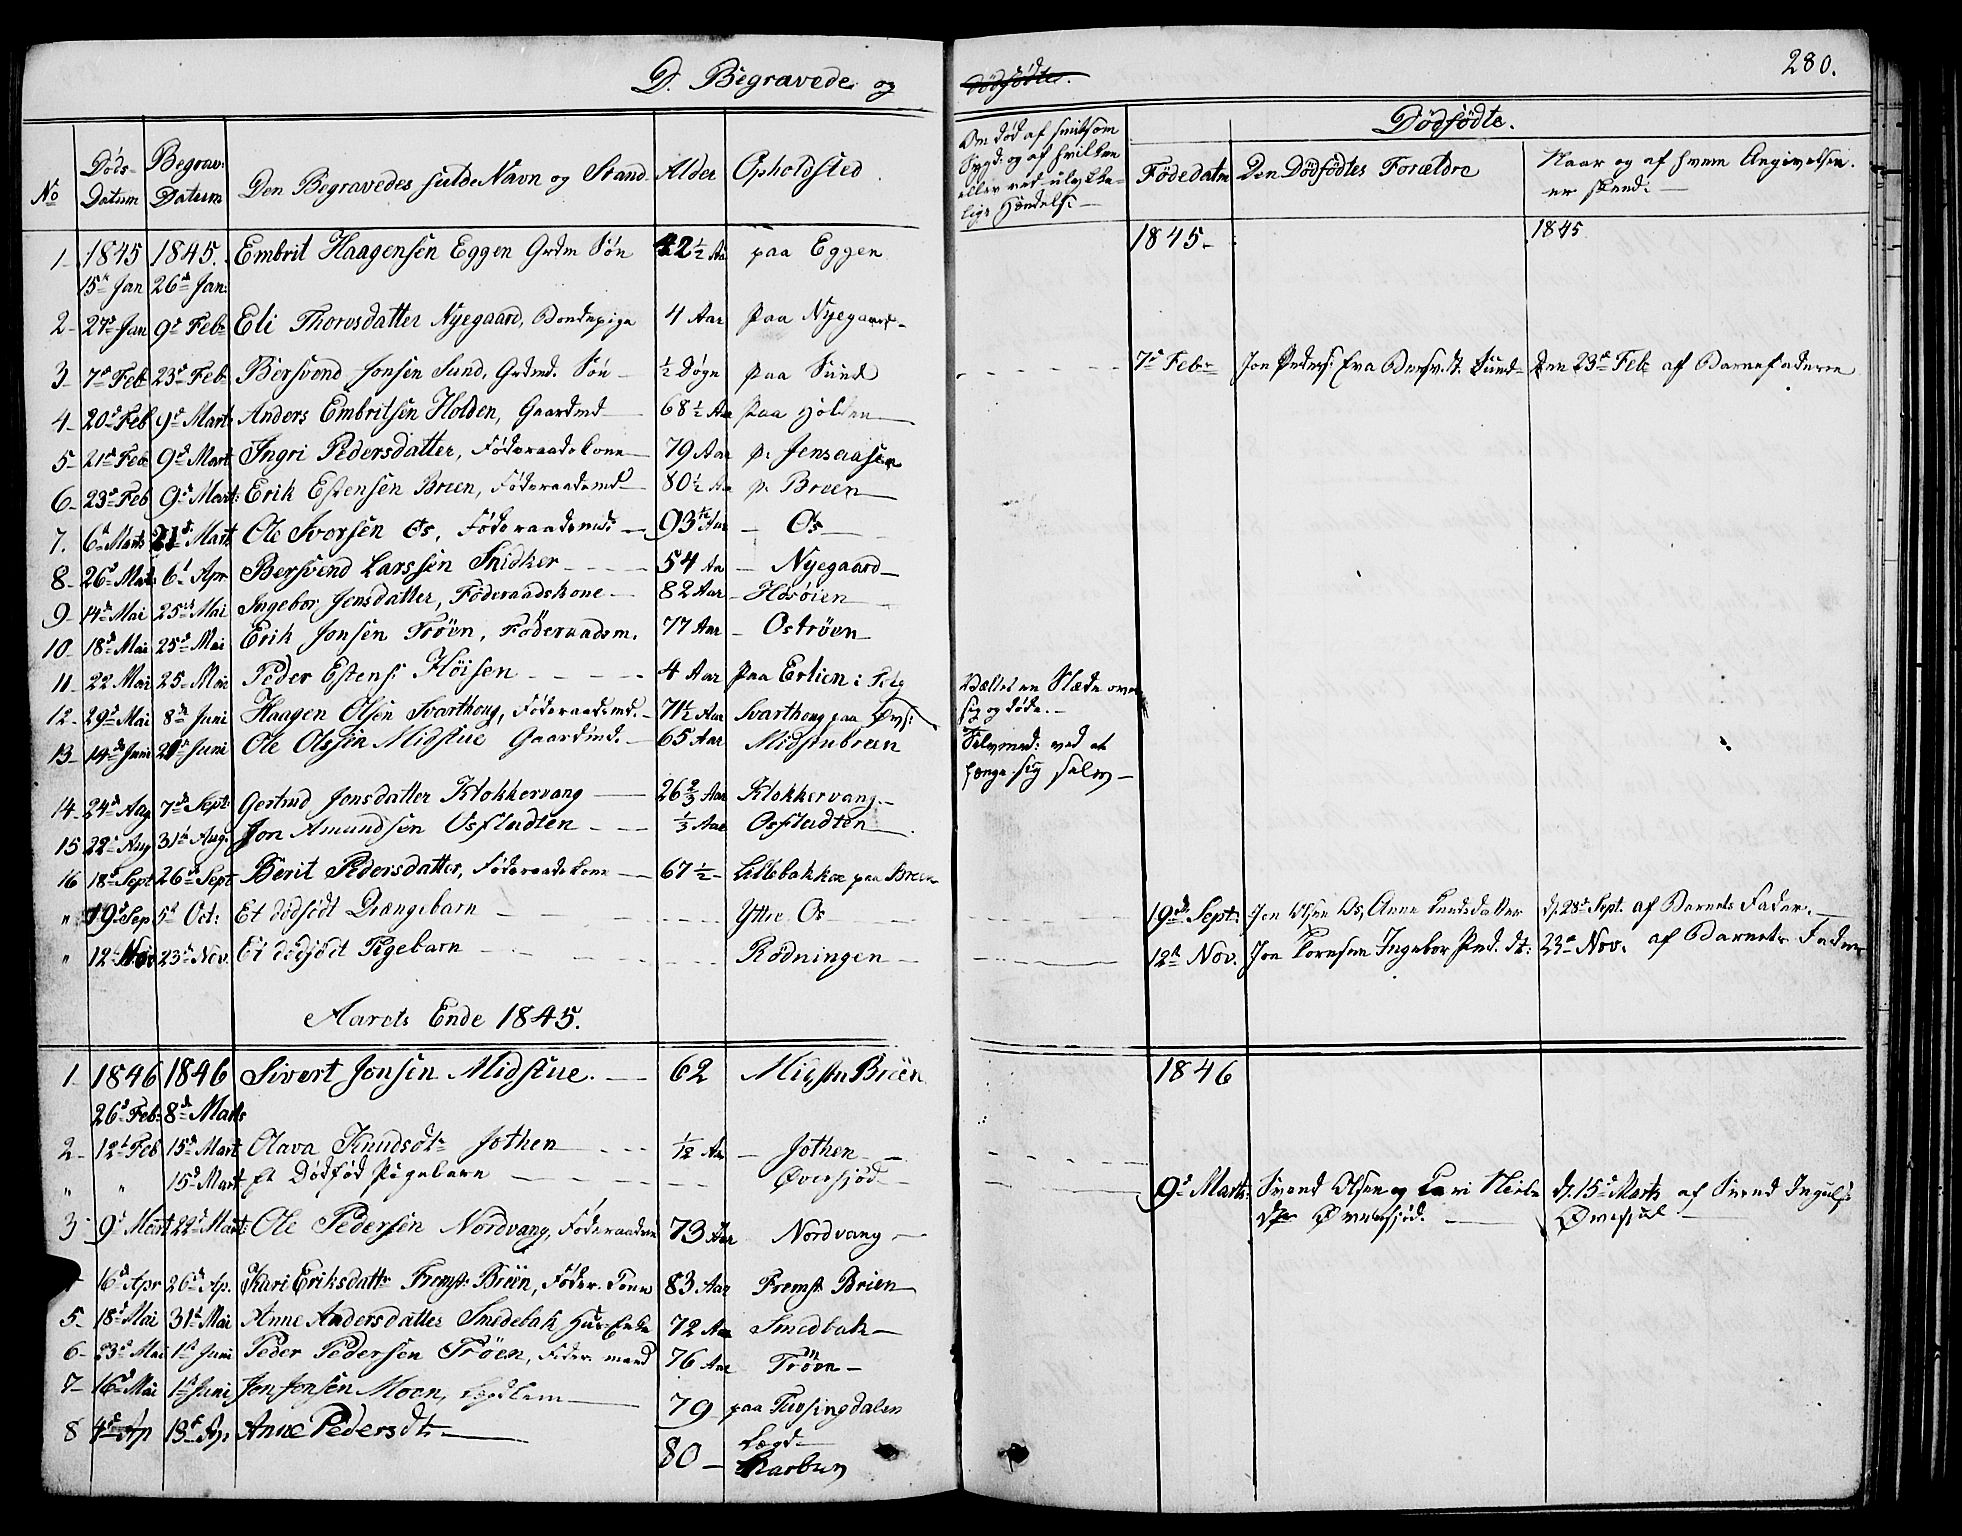 D. Begravede og
Dødfødte.
280.
No
Døds-Datum
Begrav: Datum
Den Begravedes fulde Navn og Stand
Alder
Opholdsted
Om død af smitsom Sygd: og af hvilken eller ved ulykkelige Hændelse
Dødfødte.
Fødedatum
Den Dødfødtes Forældre
Naar og af hvem Angivelsen er skeed:
1- 1845 1845. Embrit Haagensen Eggen Grdm Søn 42½ Aar paa Eggen 1845- 1845
15de Jan 26de Jan:
2- 27de Jan 9de Feb Eli Thorosdatter Nyegaard, Bondepige 4 Aar paa Nyegaard-
3- 7de Feb 23de Feb Bersvend Jonsen Sund, Grdmd. Søn ½ Døgn paa Sund 7de Febr Jon Peders: Eva Bersv.dt. Sund- Den 23de Feb af Barnefaderen
4- 20de Feb 9de Mart Anders Embritsen Holden, Gaardmd 68½ Aar paa Holden
5- 21de Feb 9de Mart Ingri Pedersdatter, Føderaadskone 79 Aar p. Jensaasen
6- 23de Feb 9de Mart: Erik Estensen Breen, Føderaadsmd 80½ Aar p. Breen
7. 6de Marts 21de Mart Ole Ivorsen Os, Føderaadsmd 93 Aar - Os
8- 26de Mart 6te Apr Bersvend Larssen Snidker 54 Aar - Nyegaard
9- 14de Mai 25de Mai Ingebor Jonsdatter, Føderaadskone 82 Aar - Hosøien
10- 18de Mai 25de Mai Erik Jonsen Trøen, Føderaadsm. 77 Aar - Ostrøen
11- 22 Mai 25- Mai Peder Estens: Høisen 4 Aar paa Erlien i Selg Væltet en Slæde over sig og døde.
12- 29de Mai 8de Juni Haagen Olsen Svarthoug, Føderaadsmd. 71½ Aar Svarthoug paa Øvsj:
13- 14de Juni 21de Juni Ole Olssen Midstue Gaardmd. 65 Aar Midstubreen Selvmord: ved at hænge sig selv
14- 24de Aug 7de Sept: Gertrud Jonsdatter Klokkervang 26⅔ Aar Klokkervang.
15 22de Aug 31te Aug: Jon Amundsen Osfludten ⅓ Aar Osfludten
16 18de Sept 26de Sept Berit Pedersdatter, Føderaadskone 67½ Lillebakken paa Breen
" 19de Sep 5te Oct: Et dødfødt Drængebarn Yttre Os 19de Sept: Jon Olsen Os, Anne Knudsdatter d. 28de Sept. af Barnets Fader.
" 12te Nov 23de Nov. Et dødfødt Pigebarn Rødningen 12te Nov. Jon Torresen Ingebor Ped. dt: 23de Nov. af Barnets Fader
Aarets Ende 1845.
1- 1846 1846 Sivert Jonsen Midstue. 62 Midstu Breen 1846
26de Feb: 8de Marts
2- 12te Feb 15de Mart Olava Knudsdt Jothen 1/12 Aar - Jothen
" " 15de Mart Et Dødfød Pigebarn Øversjød 9de Marts: Svend Olsen og Kari dtr Øversjød. d. 15de Marts af Svend Ingulfs
3- 9de Mart 22de Mart: Ole Pedersen Nordvang, Føderaadsm 73 Aar Nordvang
16de Apr 26de Ap. Kari Eriksdattr Fremst: Breen, Føder. Kone 83 Aar Fremst. Breen
5- 18de Mai 31te Mai Anne Andersdatter Smedebak Huus-Enke 72 Aar Smedbak
6- 23de Mai 1ste Juni Peder Pedersen Trøen, Føder. mand 76 Aar Trøen
7- 16de Mai 1ste Juni Jon Jonsen Moen, Lægdlem 79 paa Tufsingdalen Lægd
8 4de Ap 13de Ap. Anne Pedersdt. 80